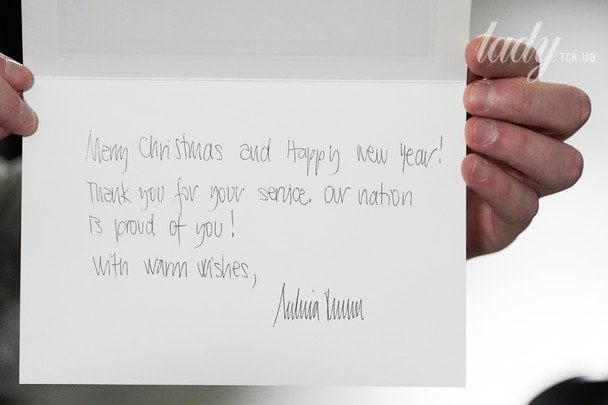 lady
TCH.UA
Merry Christmas and Happy New Year!
Thank you for your service. Our nation
is proud of you!
With warm wishes,